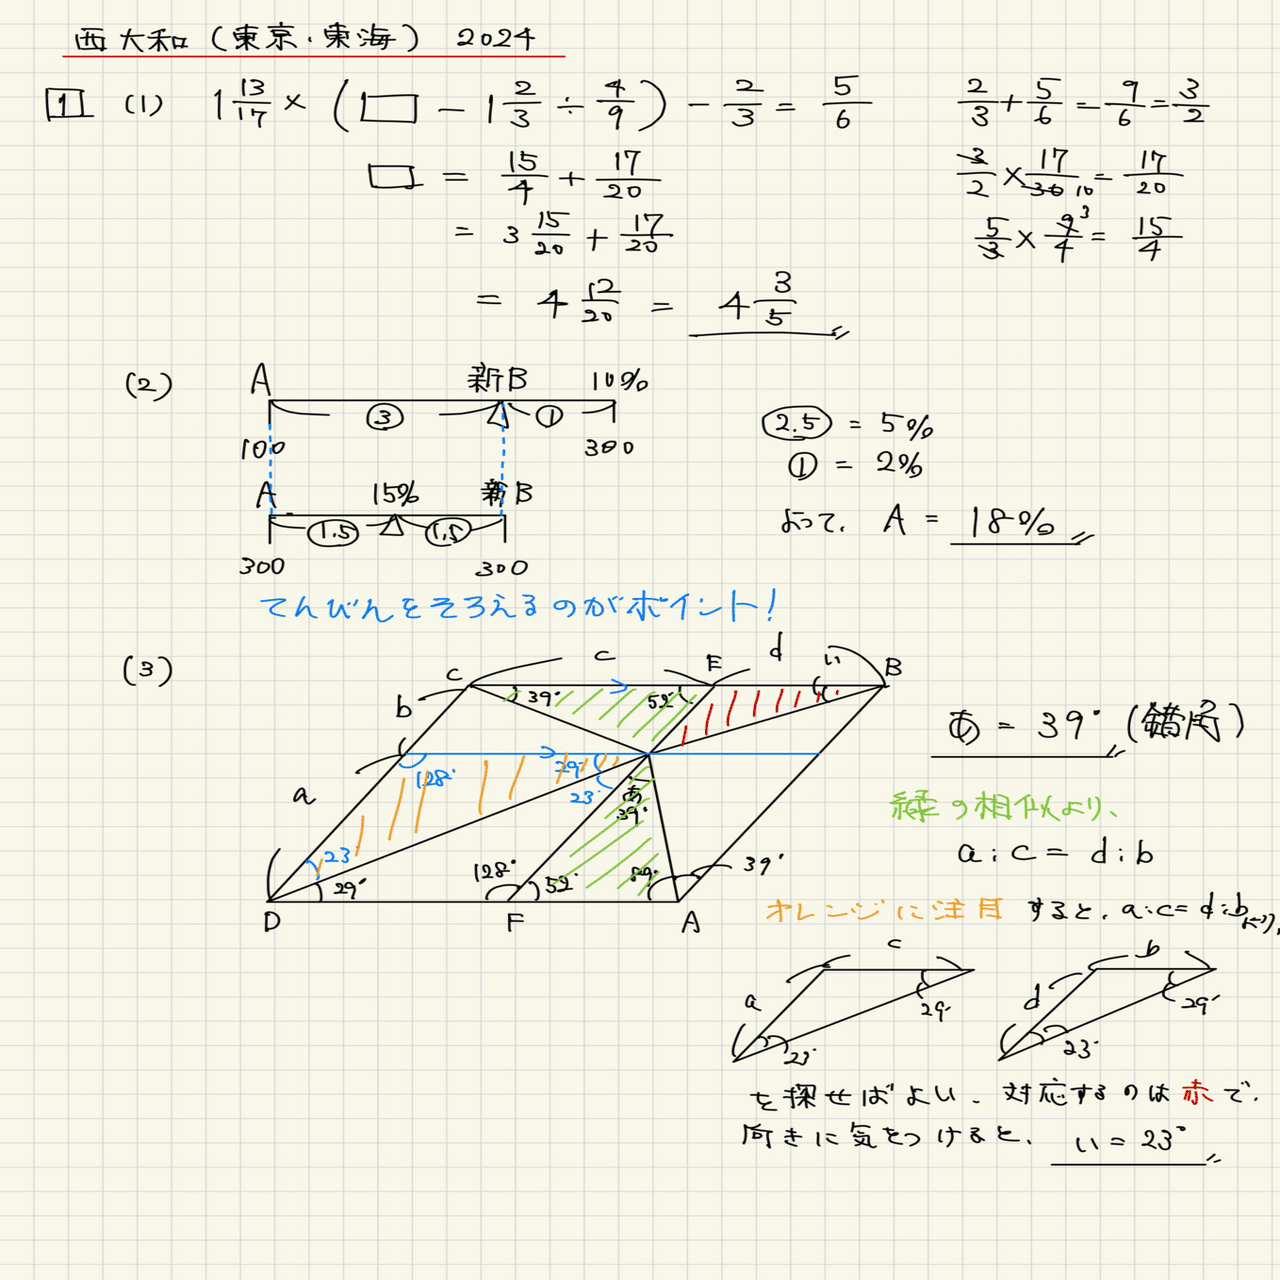 西大和(東京・東海) 2024
1 (1) 1 13/17 × (□ - 1 2/3 ÷ 4/9) - 2/3 = 5/6
2/3 + 5/6 = 9/6 = 3/2
□ = 15/4 + 17/20
3/2 × 17/30 10 = 17/20
= 3 15/20 + 17/20
5/3 × 9/4 3 = 15/4
= 4 12/20 = 4 3/5
(2) A 新B 10%
③ ①
100 300
A 15% 新B
1.5 1.5
300 300
2.5 = 5%
① = 2%
よって、A = 18%
てんびんをそろえるのがポイント!
(3)
C c E d い B
b 39° 52°
a 128° 29°
23° あ 39°
23° 29° 128° 52° 89° 39°
D F A
あ = 39° (錯角)
緑の相似より、
a:c = d:b
オレンジに注目すると、a:c=d:bより、
c b
a 29° d 29°
23° 23°
を探せばよい、対応するのは赤で、
向きに気をつけると、い = 23°